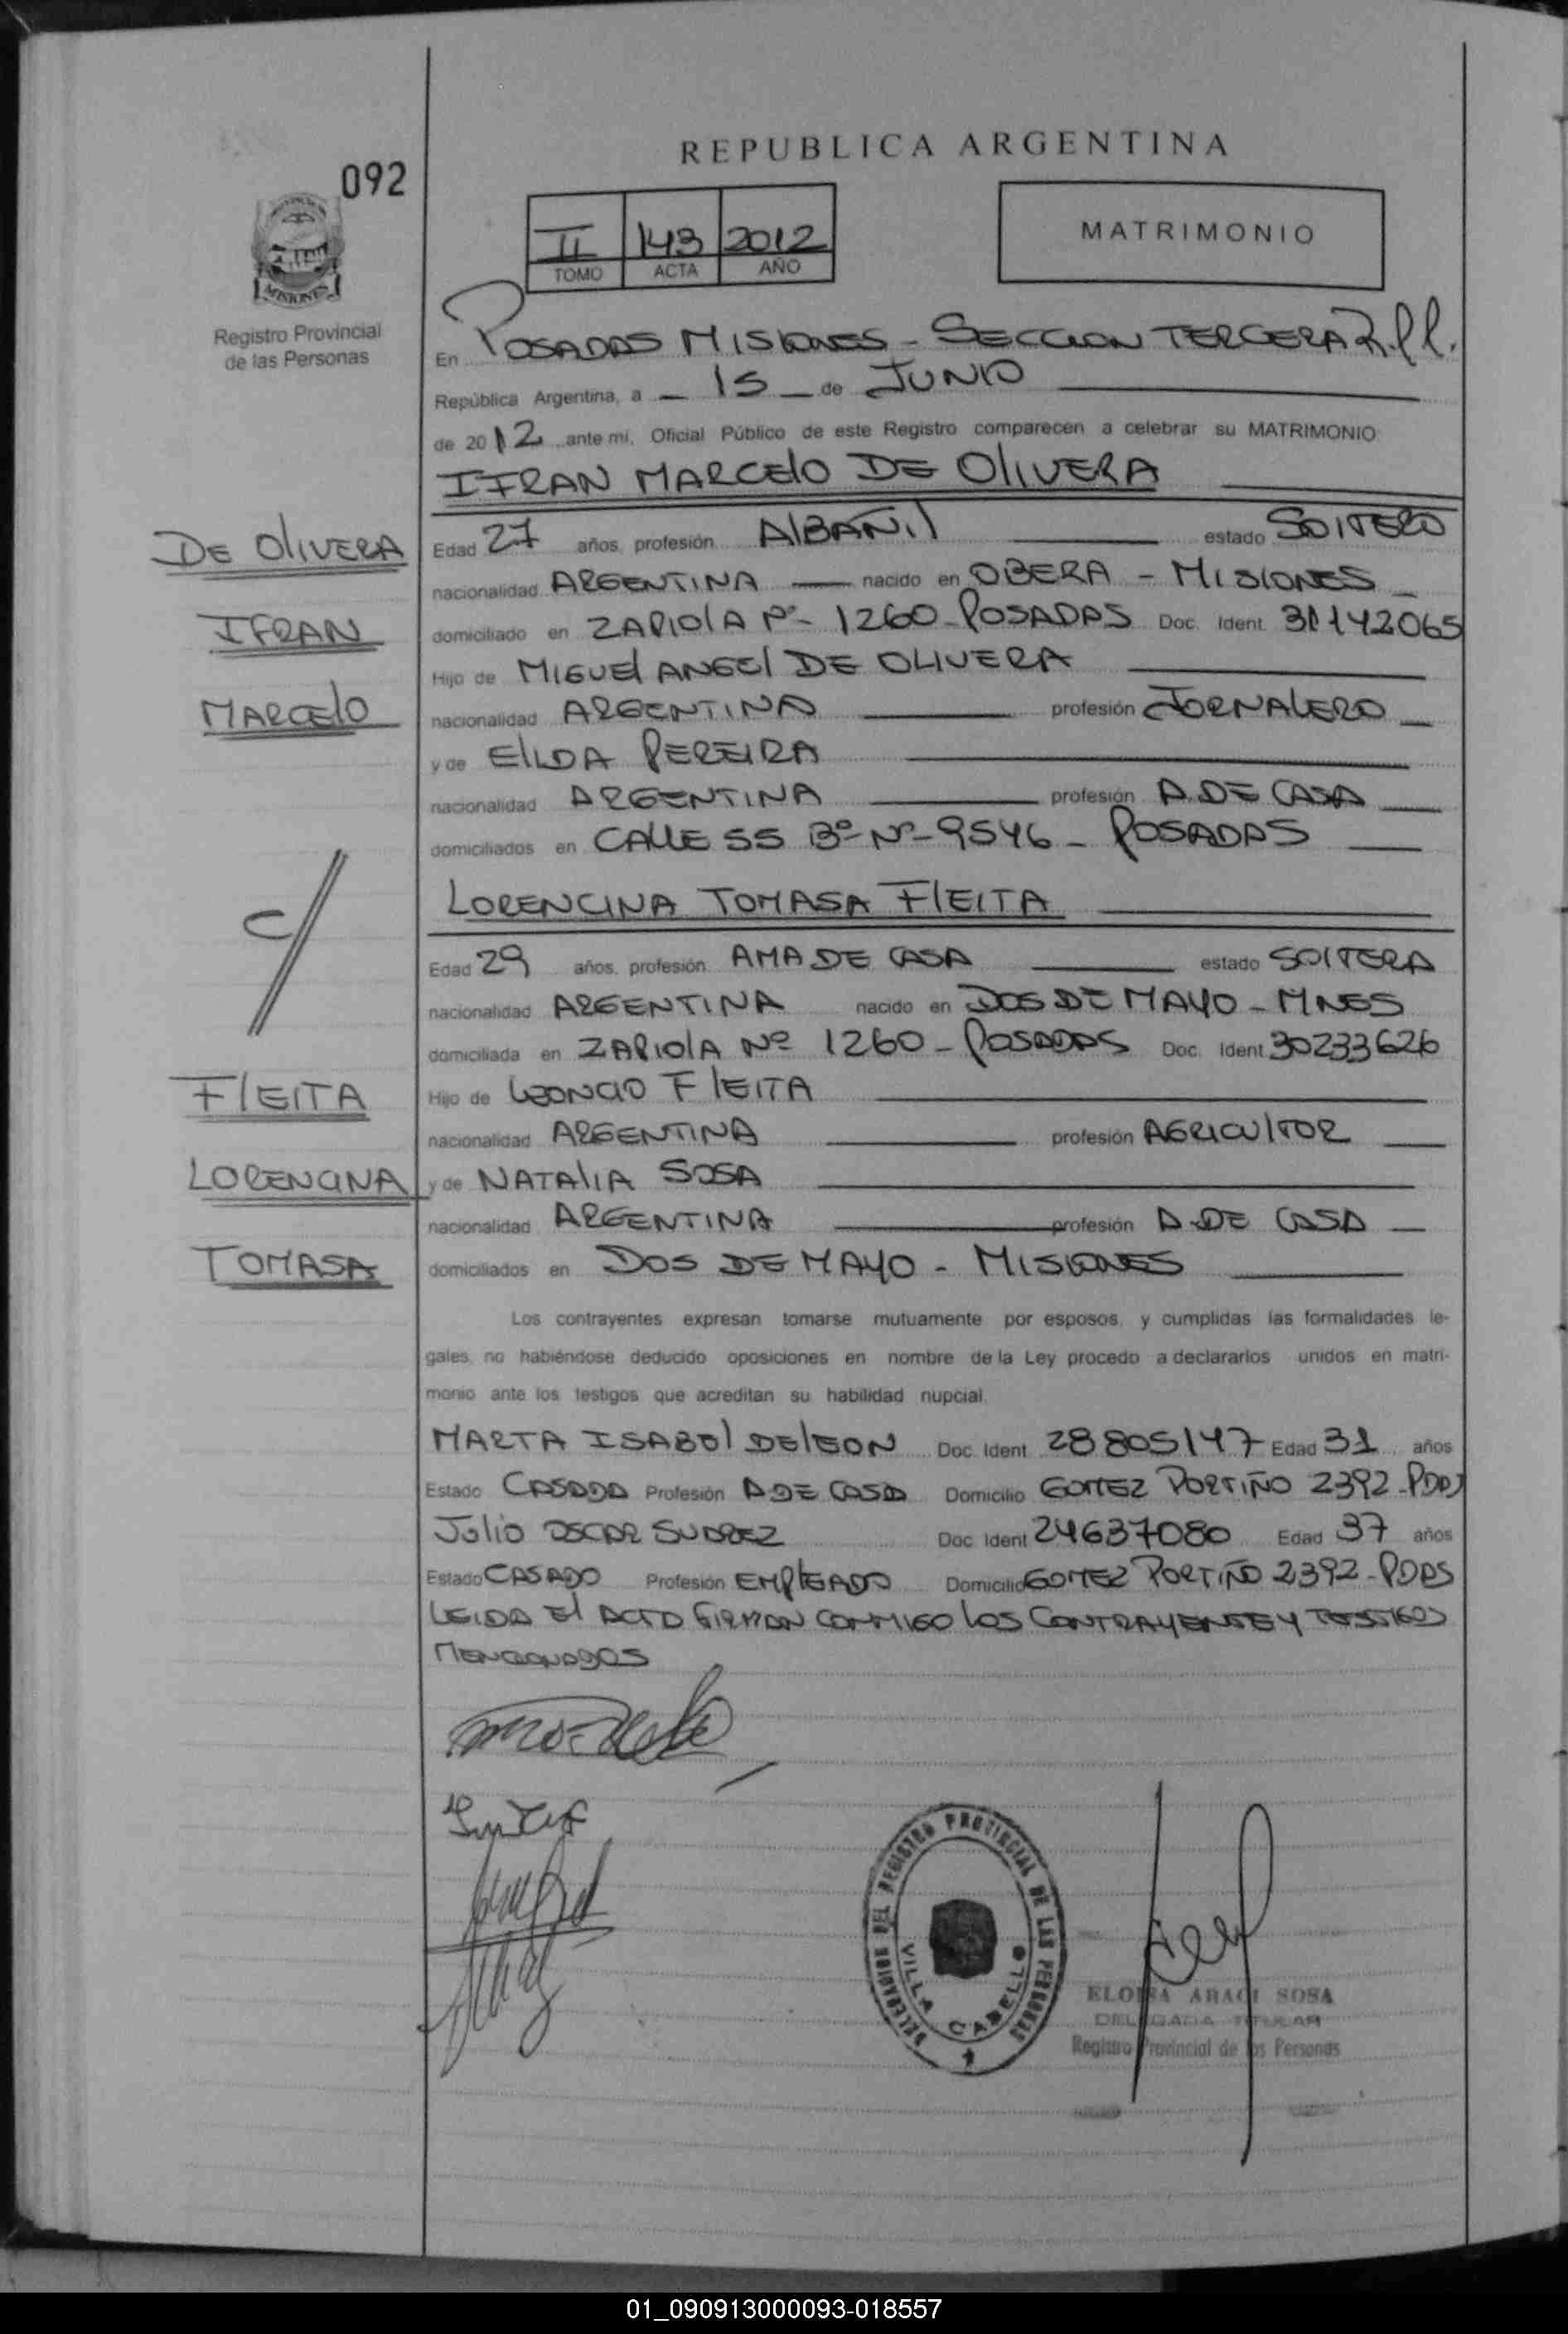 REPUBLICA ARGENTINA
092
II 143 2012
TOMO ACTA AÑO
MATRIMONIO
MISIONES
Registro Provincial
de las Personas
En POSADAS MISIONES - SECCION TERCERA R.P.P.
República Argentina, a - 15 - de JUNIO
de 2012 ante mí, Oficial Público de este Registro comparecen a celebrar su MATRIMONIO:
IFRAN MARCElO DE OlIVERA
DE OlIVERA
IFRAN
MARCElO
Edad 27 años, profesión AlBAÑIl estado SOlTERO
nacionalidad ARGENTINA nacido en OBERA - MISIONES
domiciliado en ZAPIOlA Nº- 1260 - POSADAS Doc. Ident. 31142065
Hijo de MIGUEl ANGEl DE OLIVERA
nacionalidad ARGENTINA profesión JORNALERO
y de ElLDA PEREIRA
nacionalidad ARGENTINA profesión A.DE CASA
domiciliados en CALLE 55 Bº Nº- 9546 - POSADAS
C/
LORENCINA TOMASA FlEITA
Edad 29 años, profesión AMA DE CASA estado SOlTERA
nacionalidad ARGENTINA nacido en DOS DE MAYO - MNES
domiciliada en ZAPIOlA Nº 1260 - POSADAS Doc. Ident. 30233626
FlEITA
LORENCINA
TOMASA
Hijo de LEONCIO FlEITA
nacionalidad ARGENTINA profesión AGRICUlTOR
y de NATAlIA SOSA
nacionalidad ARGENTINA profesión A.DE CASA
domiciliados en DOS DE MAYO - MISIONES
Los contrayentes expresan tomarse mutuamente por esposos, y cumplidas las formalidades le-
gales, no habiéndose deducido oposiciones en nombre de la Ley procedo a declararlos unidos en matri-
monio ante los testigos que acreditan su habilidad nupcial.
MARTA ISABEl DElEON Doc. Ident. 28805147 Edad 31 años
Estado CASADA Profesión A DE CASA Domicilio GOMEZ PORTIÑO 2392 - PDAS
JUlIO OSCAR SUAREZ Doc. Ident. 24637080 Edad 37 años
Estado CASADO Profesión EMPlEADO Domicilio GOMEZ PORTIÑO 2392 - PDAS
LEIDA El ACTO FIRMAN CONMIGO lOS CONTRAYENTE Y TESTIGOS
MENCIONADOS
DELEGACION DEL REGISTRO PROVINCIAL DE LAS PERSONAS
VILLA CABELLO
ELOISA ARACI SOSA
DELEGADA TITULAR
Registro Provincial de las Personas
01_090913000093-018557